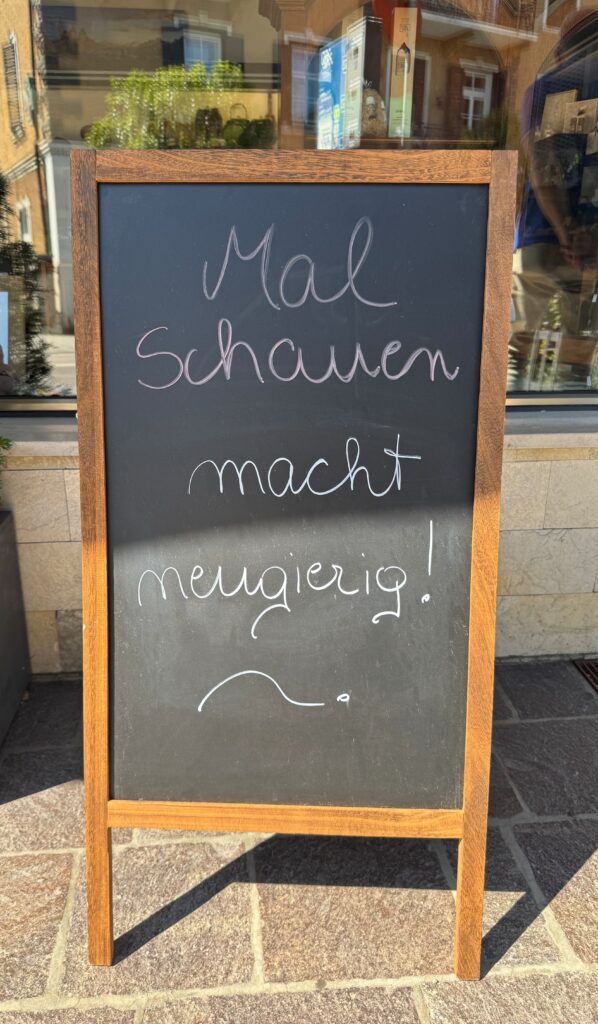 Mal
Schauen
macht
neugierig!